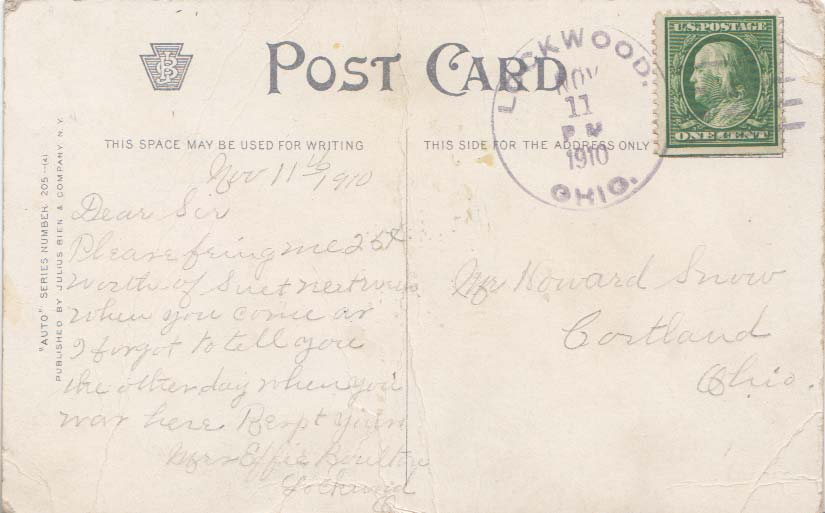 POST CARD
THIS SPACE MAY BE USED FOR WRITING
THIS SIDE FOR THE ADDRESS ONLY
U.S. POSTAGE
ONE CENT
LOCKWOOD.
NOV
11
PM
1910
OHIO.
"AUTO" SERIES NUMBER 205-(4)
PUBLISHED BY JULIUS BIEN & COMPANY, N.Y.
Nov 11th 1910
Dear Sir
Please bring me 25¢
worth of
when you come as
I forgot to tell you
the other day when you
was here. Respt Yours
Mrs Effie
Mr Howard Snow
Cortland
Ohio.